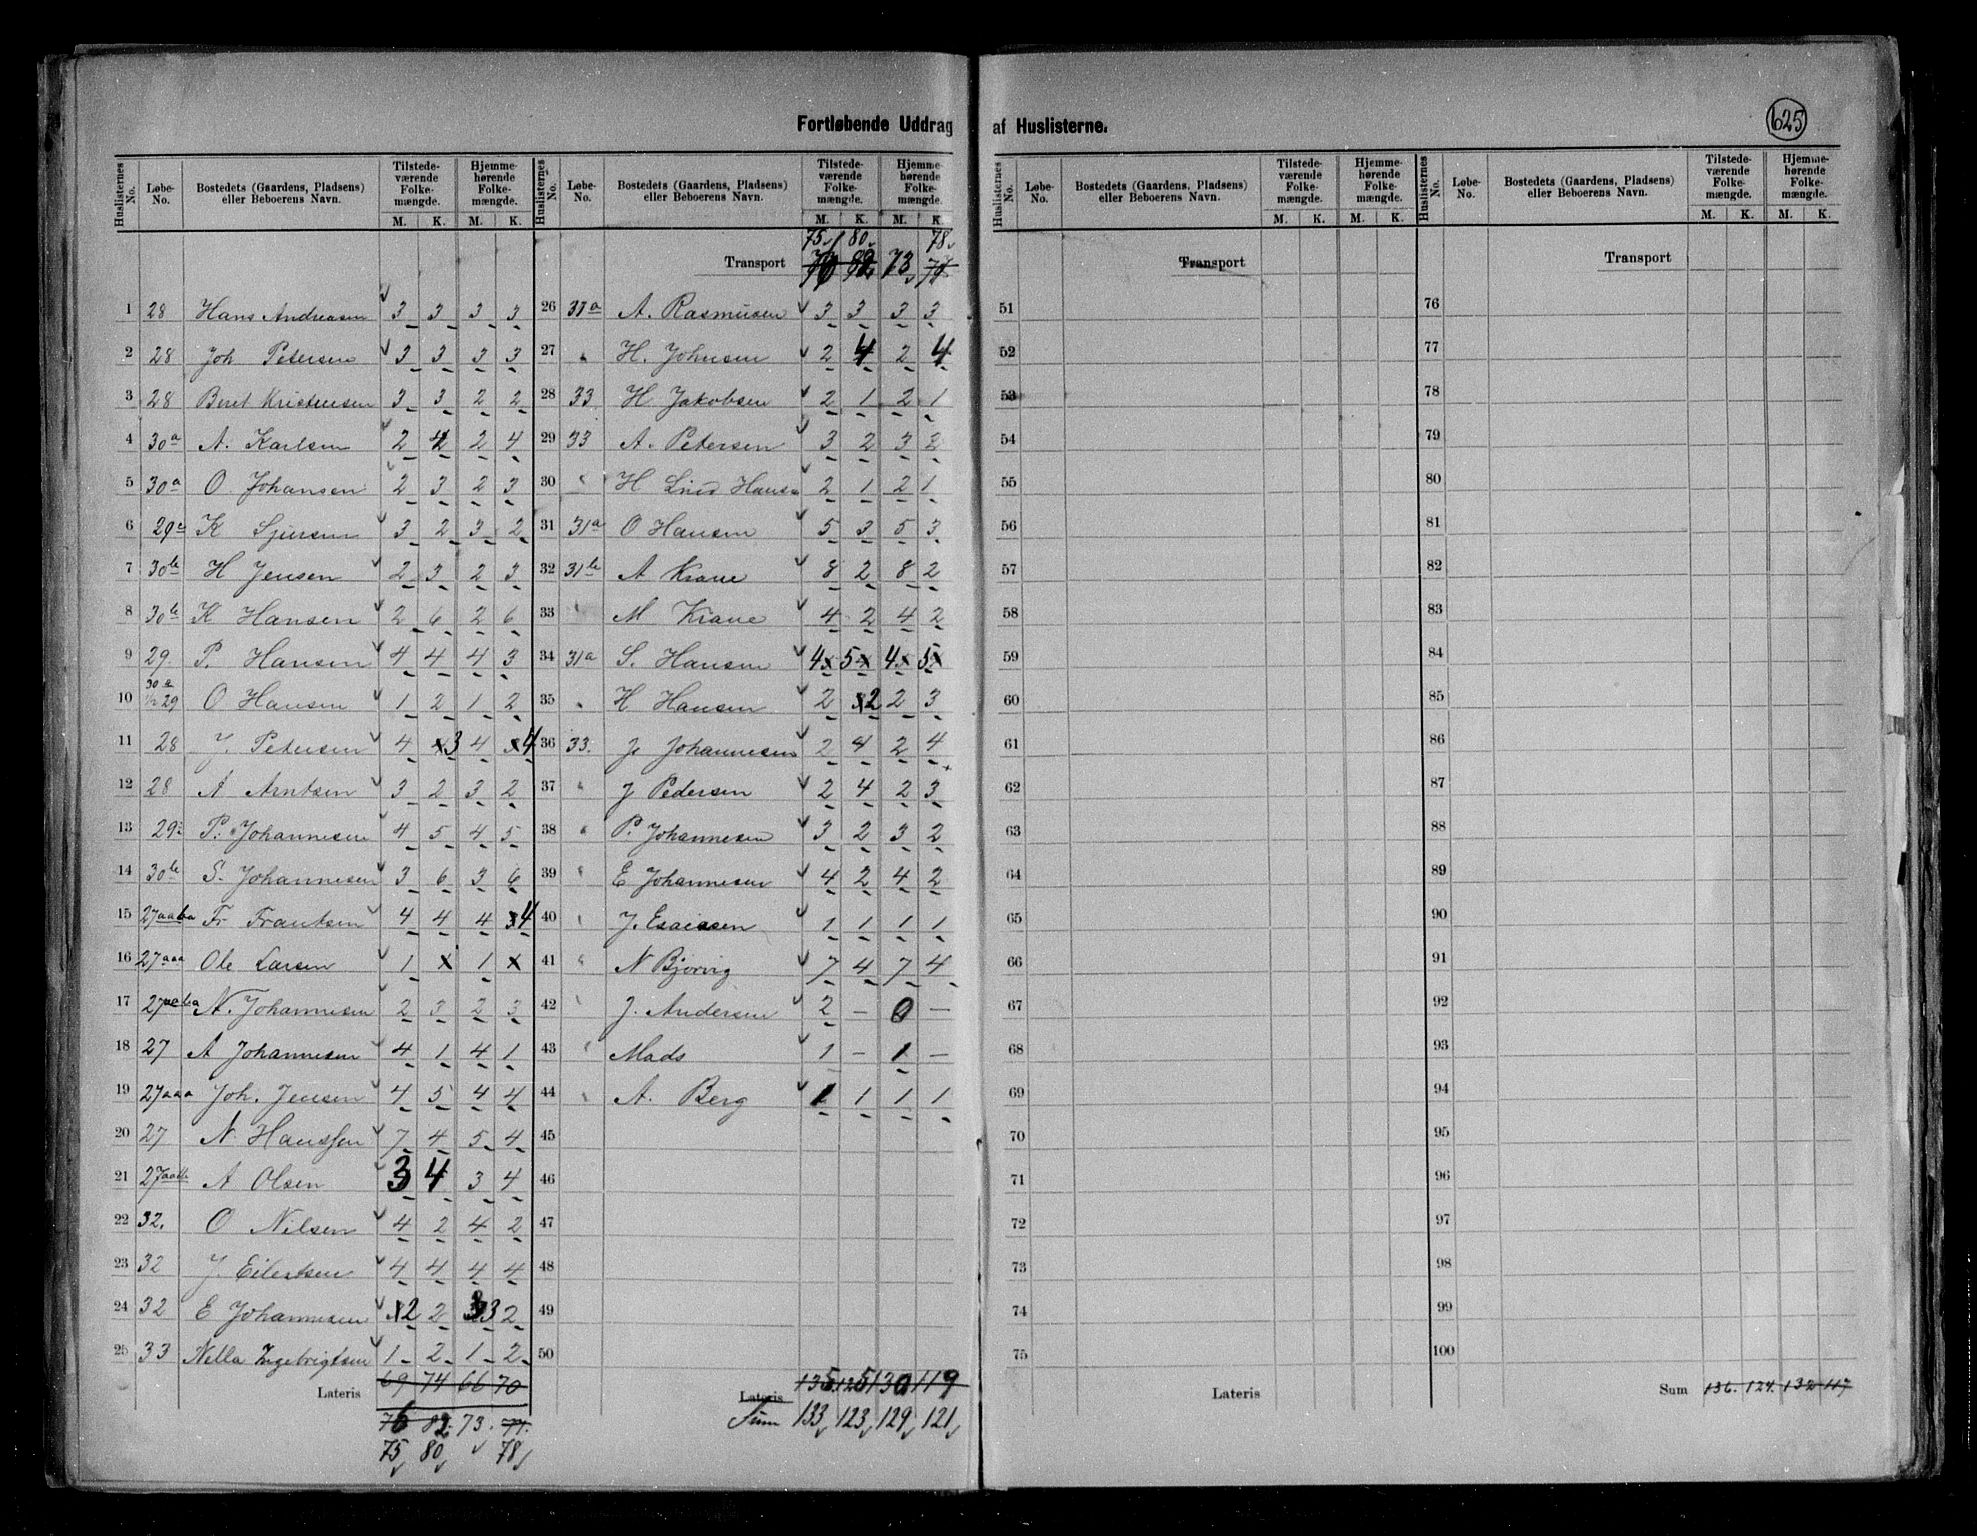 Fortløbende Uddrag af Huslisterne.
625
Huslisternes No. Løbe-No. Bostedets (Gaardens, Pladsens) eller Beboerens Navn. Tilstedeværende Folkemængde. M. K. Hjemmehørende Folkemængde. M. K.
1 28 Hans Andreasen 3 3 3 3
2 28 Joh Petersen 3 3 3 3
3 28 Beret Kristensen 3 3 2 2
4 30a A. Karlsen 2 4 2 4
5 30a O Johansen 2 3 2 3
6 29a K Sjursen 3 2 3 2
7 30b H Jensen 2 3 2 3
8 30b K Hansen 2 6 2 6
9 29. P. Hansen 4 4 4 3
10 30a 1/2 29 O Hansen 1 2 1 2
11 28 J. Petersen 4 x3 4 x4
12 28 A Arntsen 3 2 3 2
13 29 P. Johannesen 4 5 4 5
14 30b S. Johannesen 3 6 3 6
15 27aaba Fr Frantsen 4 4 4 4
16 27aaa Ole Larsen 1 x 1 x
17 27aaba N. Johannesen 2 3 2 3
18 27 A Johannesen 4 1 4 1
19 27aaa Joh. Jensen 4 5 4 4
20 27 N Hanssen 7 4 5 4
21 27aabb A Olsen 3 4 3 4
22 32. O Nilsen 4 2 4 2
23 32 J. Eilertsen 4 4 4 4
24 32 E Johannesen 2 2 3 2
25 33 Nella Ingebrigtsen 1 2 1 2
Lateris 69 74 66 70
76 82 73 77
75 80 78
Huslisternes No. Løbe-No. Bostedets (Gaardens, Pladsens) eller Beboerens Navn. Tilstedeværende Folkemængde. M. K. Hjemmehørende Folkemængde. M. K.
75 80 78
Transport 76 82 73 77
26 31a A. Rasmusen 3 3 3 3
27 " H. Johnsen 2 4 2 4
28 33 H Jakobsen 2 1 2 1
29 33 A. Petersen 3 2 3 2
30 " H Lind Hansen 2 1 2 1
31 31a O Hansen 5 3 5 3
32 31b A Krane 8 2 8 2
33 " M Krane 4 2 4 2
34 31a S. Hansen 4x 5x 4x 5x
35 " H Hansen 2 2 2 3
36 33. J. Johannesen 2 4 2 4
37 " J Pedersen 2 4 2 3
38 " P. Johannesen 3 2 3 2
39 " E Johannesen 4 2 4 2
40 " J. Esaiassen 1 1 1 1
41 " N Bjørvig 7 4 7 4
42 " J. Andersen 2 – 0 –
43 " Mads 1 – 1 –
44 " A. Berg 1 1 1 1
45
46
47
48
49
50
Lateris 135 125 130 119
Sum 133 123 129 121
Huslisternes No. Løbe-No. Bostedets (Gaardens, Pladsens) eller Beboerens Navn. Tilstedeværende Folkemængde. M. K. Hjemmehørende Folkemængde. M. K.
Transport
51
52
53
54
55
56
57
58
59
60
61
62
63
64
65
66
67
68
69
70
71
72
73
74
75
Lateris
Huslisternes No. Løbe-No. Bostedets (Gaardens, Pladsens) eller Beboerens Navn. Tilstedeværende Folkemængde. M. K. Hjemmehørende Folkemængde. M. K.
Transport
76
77
78
79
80
81
82
83
84
85
86
87
88
89
90
91
92
93
94
95
96
97
98
99
100
Sum 136. 124. 132 117